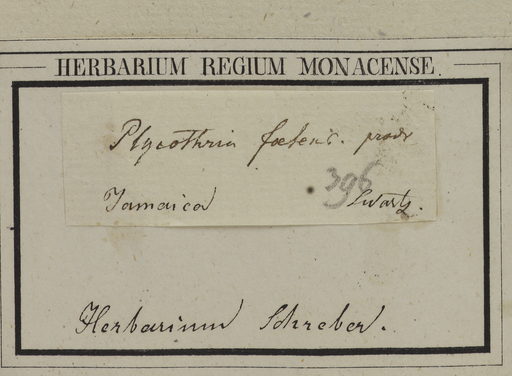 HERBARIUM REGIUM MONACENSE.
Psycothria foetens. prodr
396
Jamaica Swartz.
Herbarium Schreber.